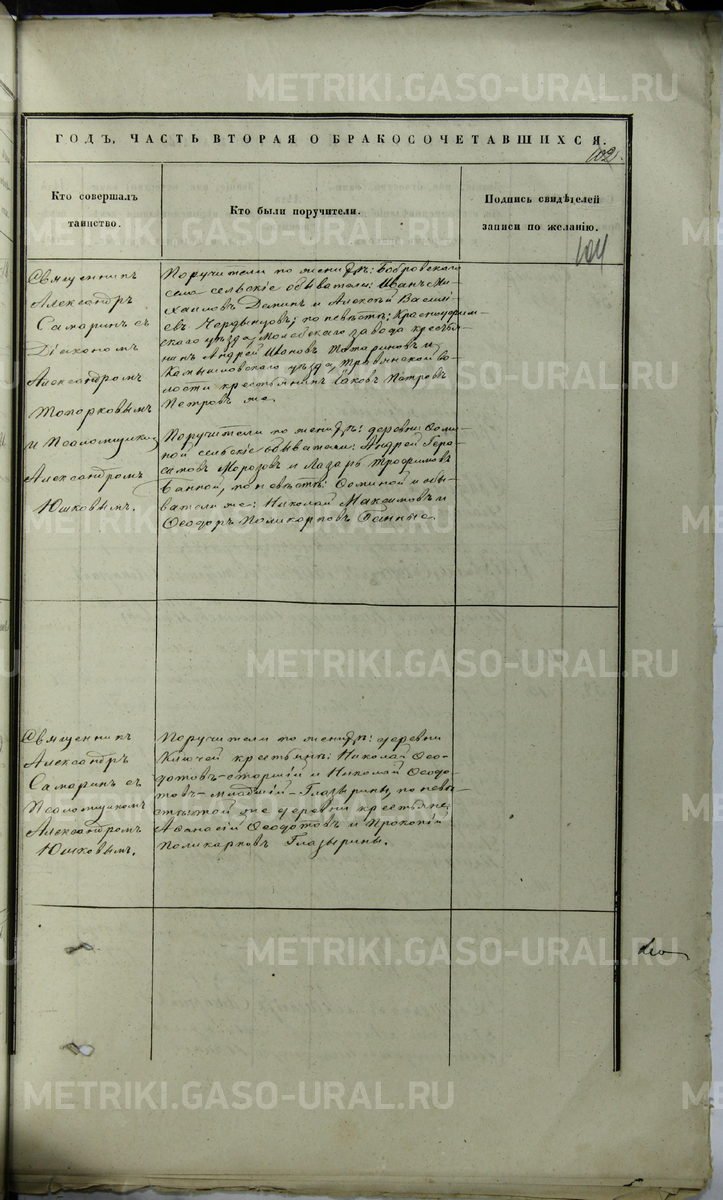 METRIKI.GASO-URAL.RU
ГОДЪ, ЧАСТЬ ВТОРАЯ О БРАКОСОЧЕТАВШИХСЯ.
102.
Кто совершалъ
таинство.
Кто были поручители.
Подпись свидѣтелей
записи по желанію.
104
Священникъ
Александръ
Самаринъ съ
Діакономъ
Александромъ
Топорковымъ
и Псаломщикомъ
Александромъ
Юшковымъ.
Поручители по женихѣ: Бобровскаго
села сельскіе обыватели: Иванъ Ми-
хаиловъ и Алексѣй Василі-
евъ Чердынцовъ; по невѣстѣ: Красноуфим-
скаго уѣзда, Молебскаго завода кресть-
янинъ Андрей Ивановъ Татариновъ и
Камышловскаго уѣзда, Травянской во-
лости крестьянинъ Іаковъ Петровъ
Петровъ же.
Поручители по женихѣ: деревни Осми-
ной сельскіе обыватели: Андрей Гера-
симовъ Морозовъ и Лазарь Трофимовъ
по невѣстѣ: Осминой и обы-
ватели же: Николай Максимовъ и
Ѳеодоръ Поликарповъ
Священникъ
Александръ
Самаринъ съ
Псаломщикомъ
Александромъ
Юшковымъ.
Поручители по женихѣ: деревни
Ключей крестьяне: Николай Ѳео-
дотовъ-старшій и Николай Ѳеодо-
товъ-младшій-Глазырины, по невѣ-
стѣ: той же деревни крестьяне:
Аѳанасій Ѳеодотовъ и Прокопій
Поликарповъ Глазырины.
METRIKI.GASO-URAL.RU
METRIKI.GASO-URAL.RU
METRIKI.GASO-URAL.RU
METRIKI.GASO-URAL.RU
METRIKI.GASO-URAL.RU
METRIKI.GASO-URAL.RU
METRIKI.GASO-URAL.RU